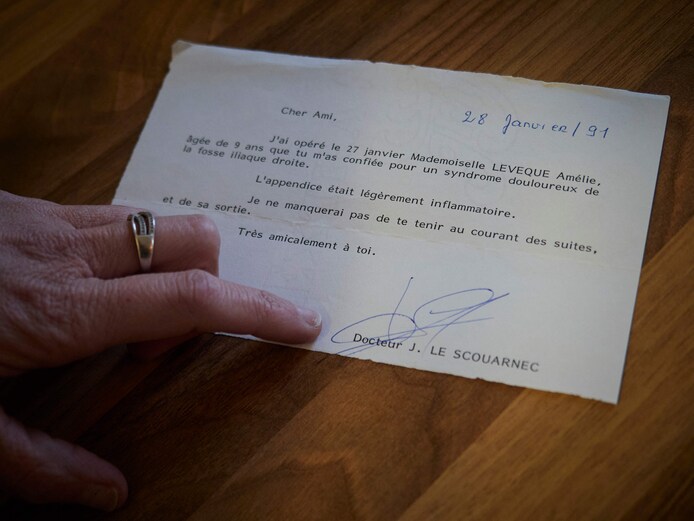 Cher Ami,
28 Janvier/91
J'ai opéré le 27 janvier Mademoiselle LEVEQUE Amélie,
âgée de 9 ans que tu m'as confiée pour un syndrome douloureux de
la fosse iliaque droite.
L'appendice était légèrement inflammatoire.
Je ne manquerai pas de te tenir au courant des suites,
et de sa sortie.
Très amicalement à toi.
Docteur J. LE SCOUARNEC